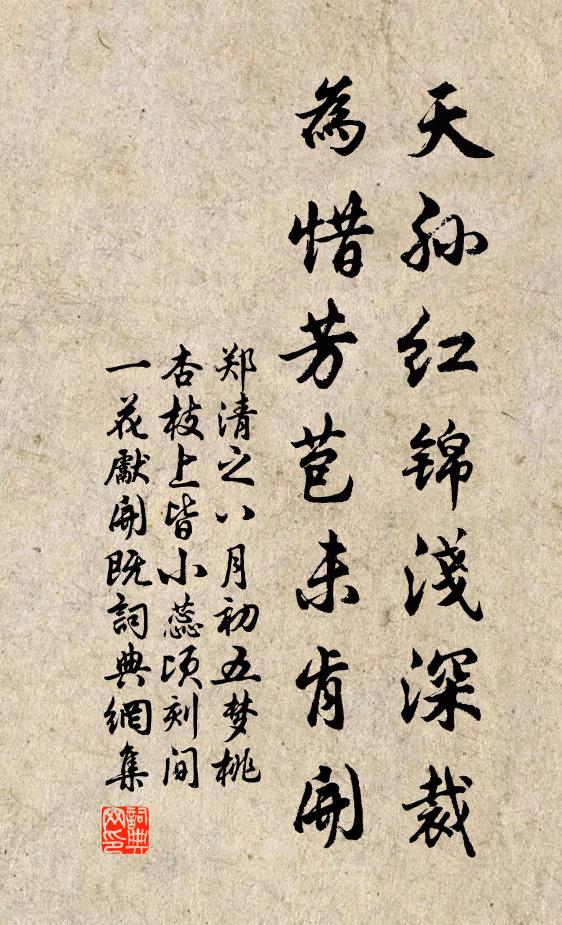 天孙红锦淺深裁
為惜芳苞未肯開
郑清之八月初五梦桃
杏枝上皆小蕊頃刻间
一花獻開既詞典網集
詞典
网印